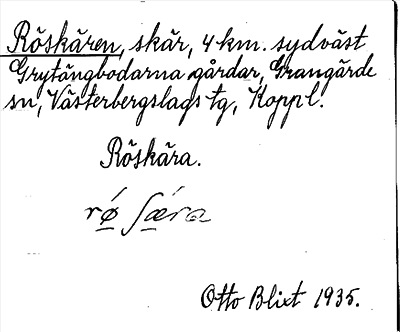 Röskären, skär, 4 km. sydväst
Grytängbodarna gårdar, Grangärde
sn, Västerbergslags tg, Kopp l.
Röskära.
rǿ ʃǽra
Otto Blixt 1935.